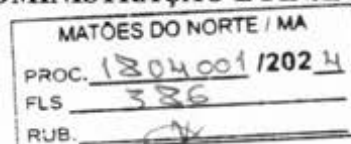 MATÕES DO NORTE / MA
PROC. 1804001 /2024
FLS 386
RUB.